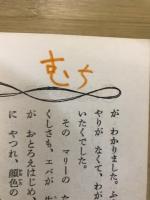 むち
が わかりました。ふ
やりが なくて、わが
いたくでした。
その マリーの な
くしさも、エバが 生
が おとろえはじめ、
に やつれ、顔色の